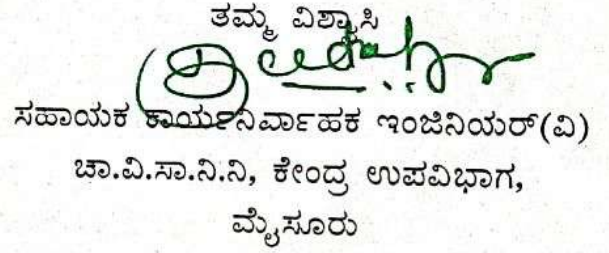 ತಮ್ಮ ವಿಶ್ವಾಸಿ
ಸಹಾಯಕ ಕಾರ್ಯನಿರ್ವಾಹಕ ಇಂಜಿನಿಯರ್(ವಿ)
ಚಾ.ವಿ.ಸಾ.ನಿ.ನಿ, ಕೇಂದ್ರ ಉಪವಿಭಾಗ,
ಮೈಸೂರು